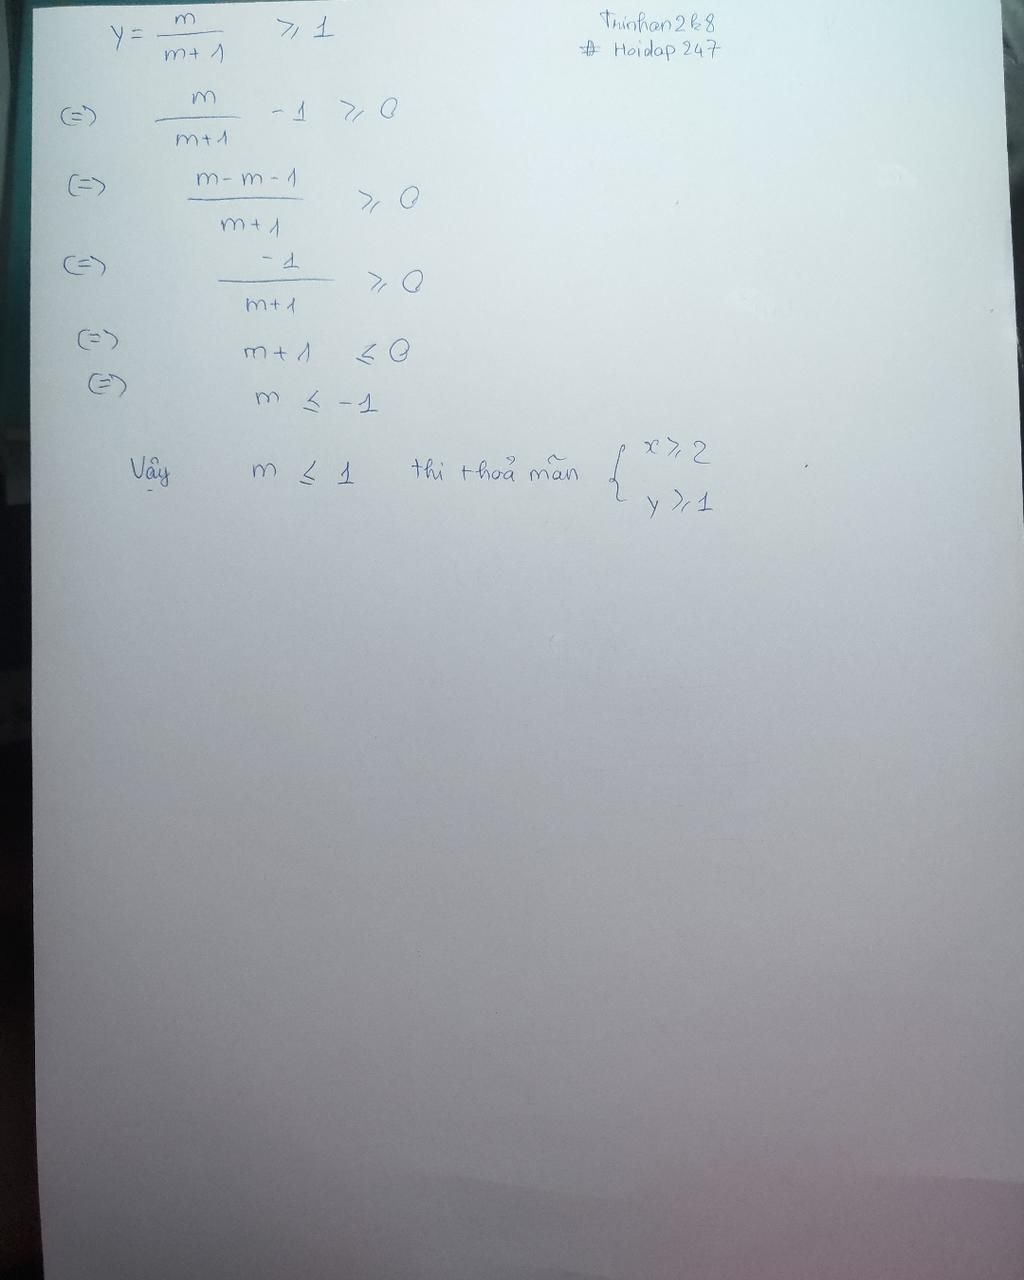 y = m/(m+1) ⩾ 1
Trinhan2k8
# Hoidap247
(=) m/(m+1) - 1 ⩾ 0
(=) (m-m-1)/(m+1) ⩾ 0
(=) -1/(m+1) ⩾ 0
(=) m+1 ≤ 0
(=) m ≤ -1
Vậy m ≤ 1 thì thoả mãn { x ⩾ 2
y ⩾ 1